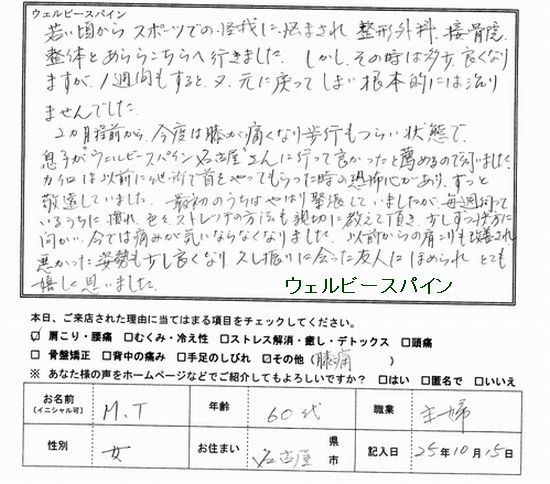 ウェルビースパイン
若い頃からスポーツでの怪我に悩まされ 整形外科、接骨院、
整体とあちらこちらへ行きました。しかし、その時は多少良くなり
ますが、1週間もすると、又、元に戻ってしまい根本的には治り
ませんでした。
2カ月程前から、今度は膝が痛くなり歩行もつらい状態で、
息子がウェルビースパイン名古屋さんに行って良かったと薦めるので伺いました。
カイロは以前に他所で首をやってもらった時の恐怖心があり、ずっと
敬遠していました。最初のうちはやはり緊張していましたが、毎週伺って
いるうちに慣れ、色々ストレッチの方法も親切に教えて頂き、少しずつ快方に
向かい、今では痛みが気にならなくなりました。以前からの肩こりも改善され
悪かった姿勢も少し良くなり、久し振りに会った友人にほめられ とても
嬉しく思いました。
ウェルビースパイン
本日、ご来店された理由に当てはまる項目をチェックしてください。
☑ 肩こり・腰痛 □むくみ・冷え性 □ストレス解消・癒し・デトックス □頭痛
□ 骨盤矯正 □背中の痛み □手足のしびれ ☑その他 (膝痛)
※ あなた様の声をホームページなどでご紹介してもよろしいですか？ □はい □匿名で □いいえ
お名前 (イニシャル可) M.T 年齢 60代 職業 主婦
性別 女 お住まい 名古屋 県 市 記入日 25年10月15日